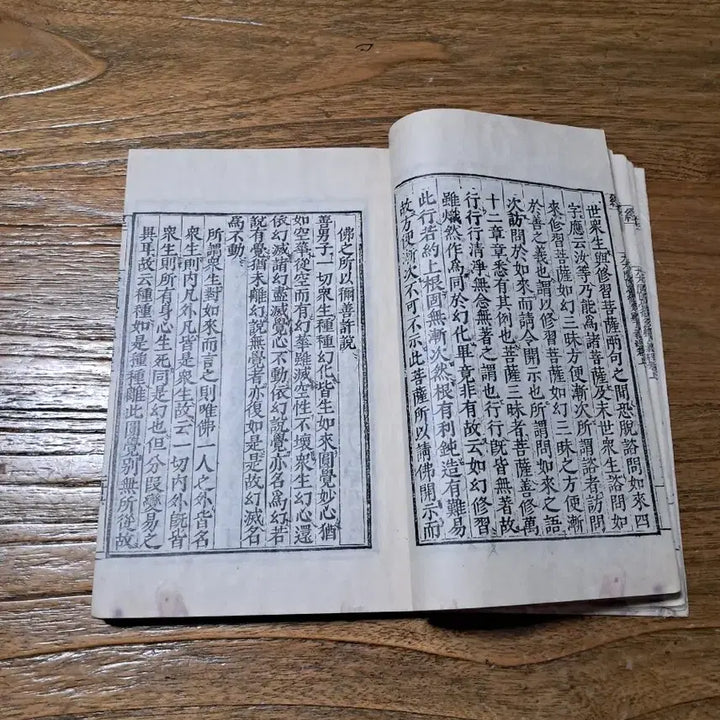 世衆生與修習菩薩兩句之間恐脫諮問如來四
字應云汝等乃能爲諸菩薩及末世衆生諮問如
來修習菩薩如幻三昧方便漸次所謂諮者訪問
於善之義也謂以修習菩薩如幻三昧之方便漸
次訪問於如來而請令開示也所謂問如來之語
十二章章悉有其例也菩薩三昧者菩薩善修萬
行行行清淨無念無著之謂也行行旣皆無著故
雖熾然作爲同於幻化畢竟非有故云如幻修習
此行若約上根固無漸次然根有利鈍造有難易
故方便漸次不可不示此菩薩所以請佛開示而
佛之所以彌善許說
善男子一切衆生種種幻化皆生如來圓覺妙心猶
如空華從空而有幻華雖滅空性不壞衆生幻心還
依幻滅諸幻盡滅覺心不動依幻說覺亦名爲幻若
說有覺猶未離幻說無覺者亦復如是是故幻滅名
爲不動
所謂衆生對如來而言之則唯佛一人之外皆名
衆生則內凡外凡皆是衆生故云一切內外旣皆
衆生則所有身心生死同是幻也但分段變易之
異耳故云種種如是種種離此圓覺別無所從故